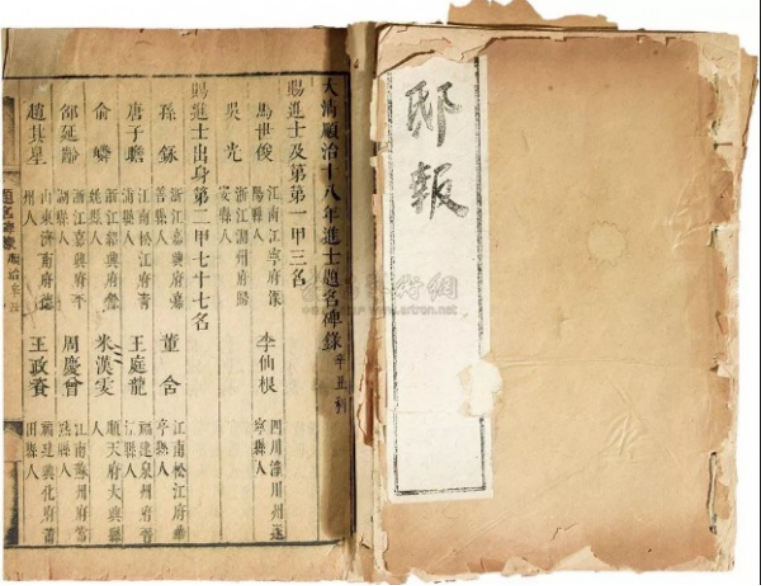 邸報
大清順治十八年進士題名碑錄 辛丑科
賜進士及第第一甲三名
馬世俊 江南江寧府溧陽縣人 李仙根 四川潼川州遂寧縣人
吳光 浙江湖州府歸安縣人
賜進士出身第二甲七十七名
孫銶 浙江嘉興府嘉善縣人 董含 江南松江府華亭縣人
唐子瞻 江南松江府青浦縣人 王庭龍 福建泉州府晉江縣人
俞鱗 浙江紹興府餘姚縣人 米漢雯 順天府大興縣人
邵延齡 浙江嘉興府平湖縣人 周慶曾 江南蘇州府常熟縣人
趙其星 山東濟南府德州人 王政 福建興化府莆田縣人
題名碑錄 順治辛丑
www.artron.net